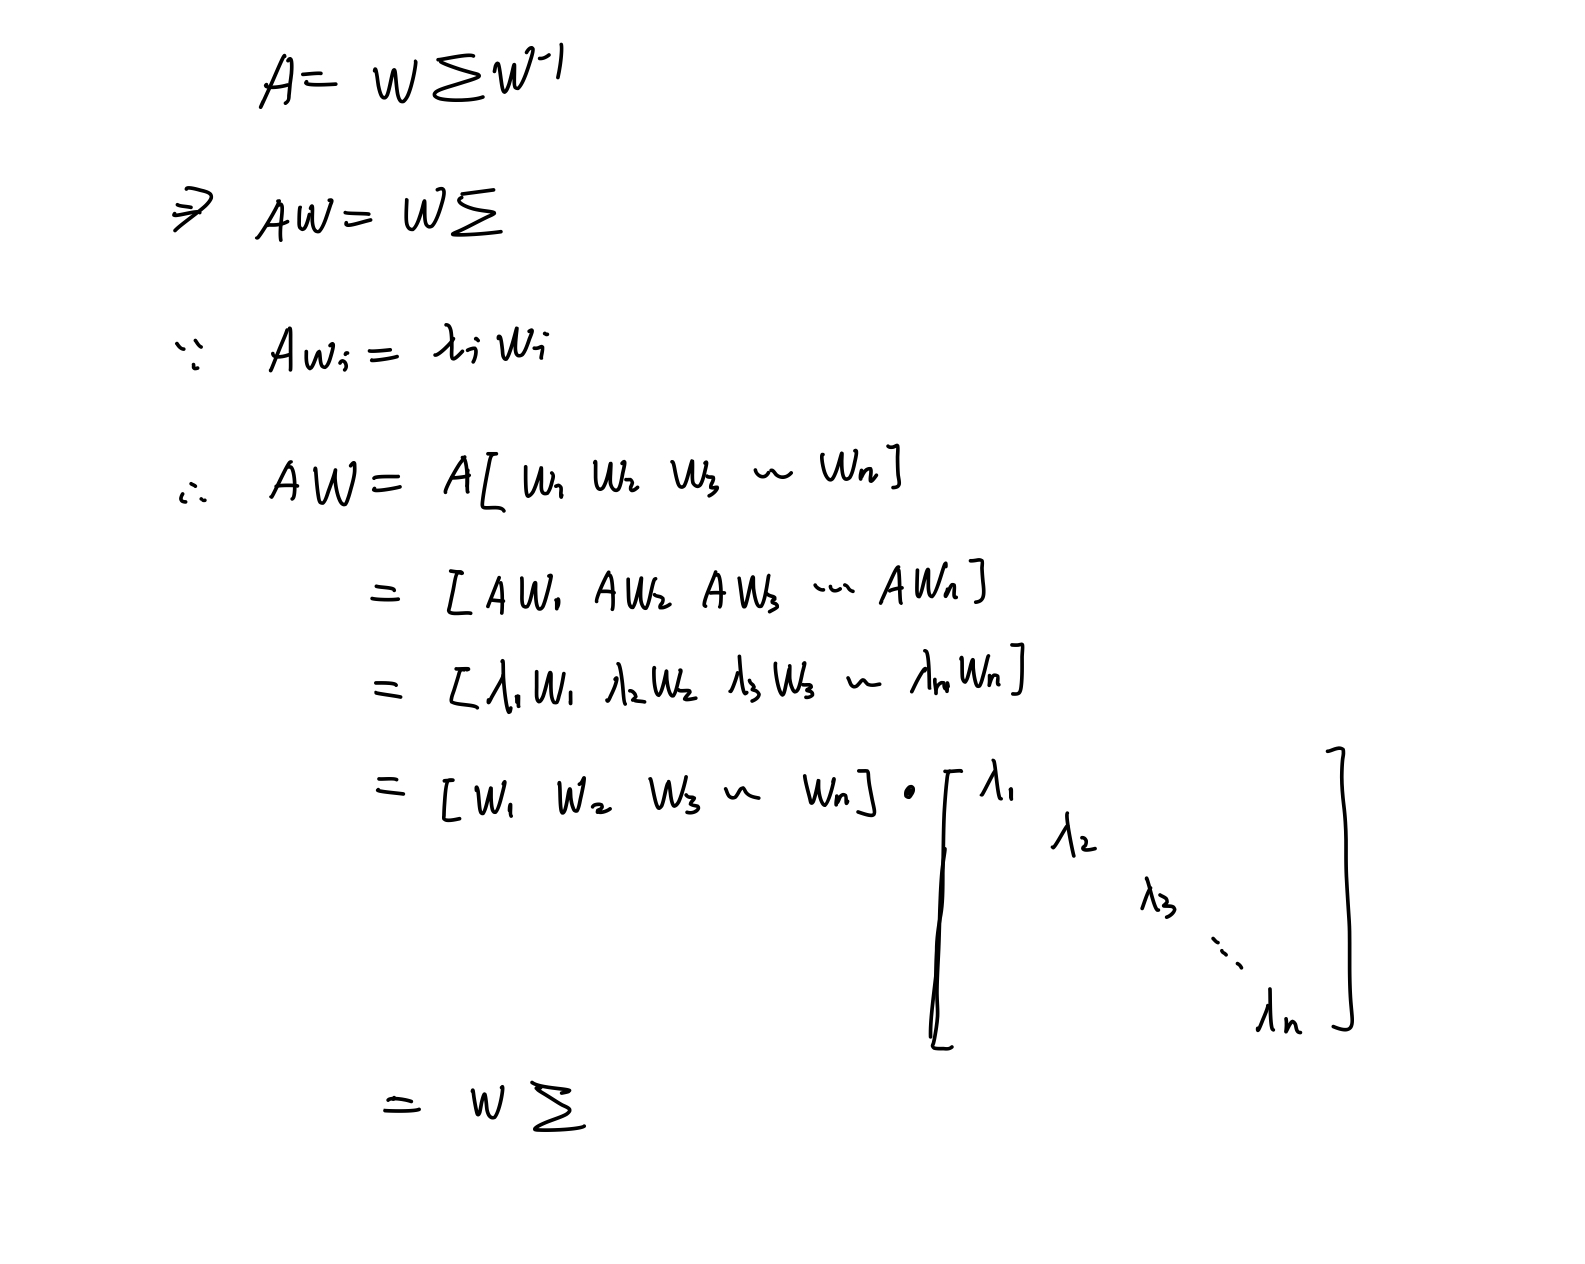 A = W Σ W⁻¹
⇒ AW = W Σ
∵ A wᵢ = λᵢ wᵢ
∴ AW = A [ w₁ w₂ w₃ ⋯ wₙ ]
= [ Aw₁ Aw₂ Aw₃ ⋯ Awₙ ]
= [ λ₁w₁ λ₂w₂ λ₃w₃ ⋯ λₙwₙ ]
= [ w₁ w₂ w₃ ⋯ wₙ ] · [ λ₁
λ₂
λ₃
⋱
λₙ ]
= W Σ